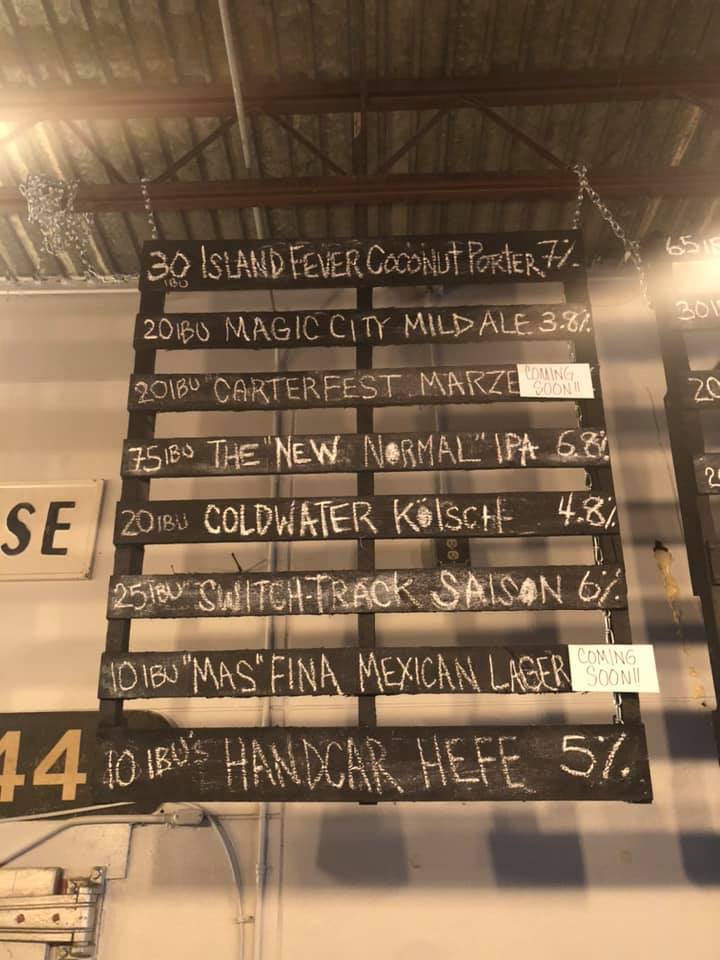 30 IBU ISLAND FEVER COCONUT PORTER 7%
20 IBU MAGIC CITY MILD ALE 3.8%
20 IBU "CARTERFEST MARZE COMING SOON!!
75 IBU THE "NEW NORMAL" IPA 6.8%
20 IBU COLDWATER KÖLSCH 4.8%
25 IBU "SWITCH-TRACK SAISON 6%
10 IBU "MAS" FINA MEXICAN LAGER COMING SOON!!
10 IBU'S HANDCAR HEFE 5%
SE
44
65 IB
30 I
20
2